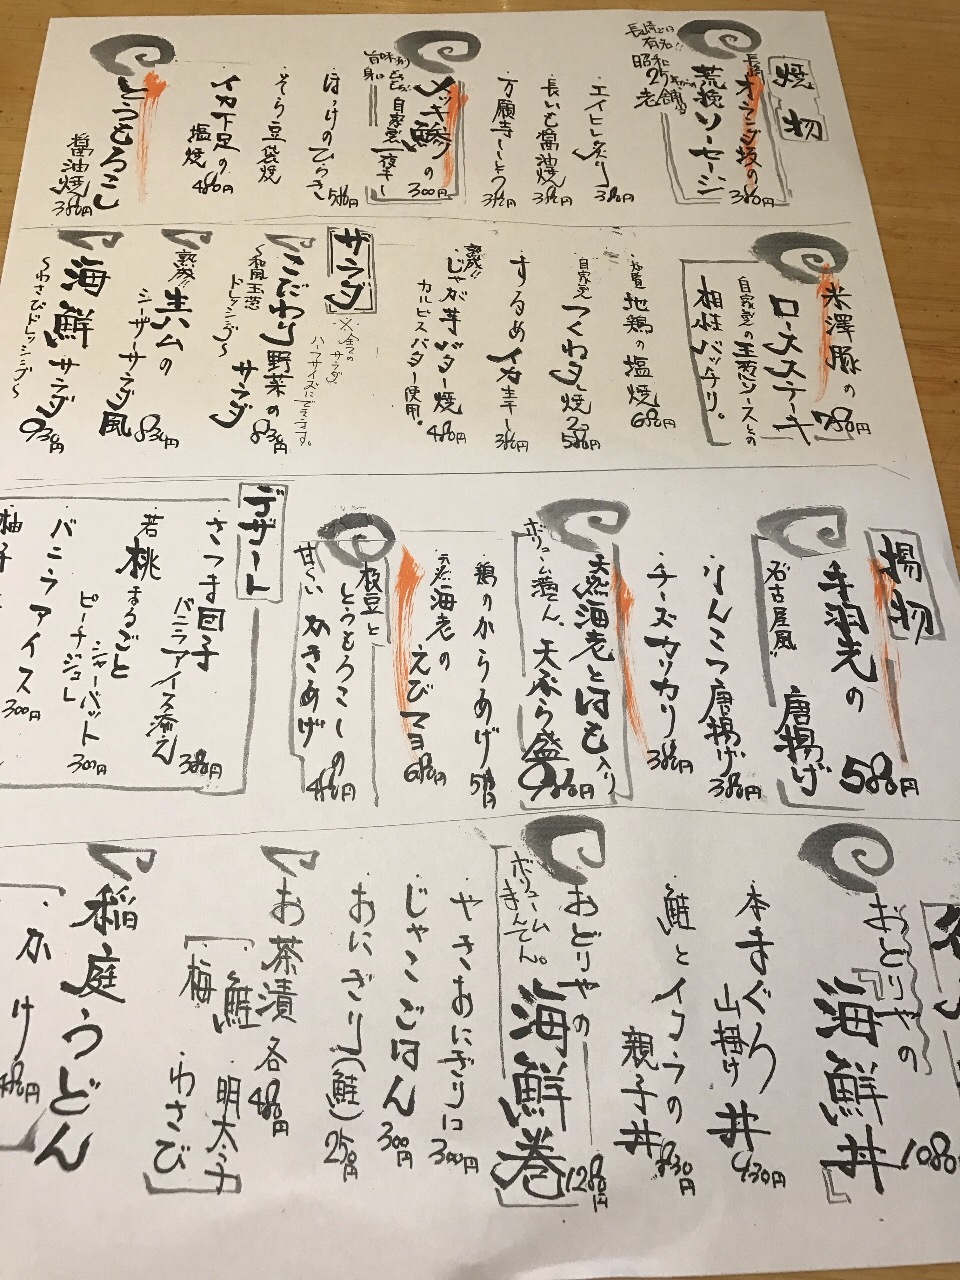 焼物
長崎では
有名!!
昭和
老舗
長崎オランダ坂の
荒挽ソーセージ
380円
エイヒレ炙り
380円
長いも醤油焼
380円
万願寺ししとう
380円
メッキ鰺の
自家製一夜干し
300円
ほっけのひらき
580円
そら豆袋焼
イカ下足の
塩焼
480円
とうもろこし
醤油焼
380円
米澤豚の
ロースステーキ
780円
自家製の玉葱ソースとの
相性バッチリ。
地鶏の塩焼
680円
自家製
つくねタレ焼
2コ
580円
するめイカ一夜干し
380円
熟成!!
じゃが芋バター焼
カルピスバター使用。
480円
サラダ
※全てのサラダ
ハーフサイズにできます。
こだわり野菜の
サラダ
830円
〜和風玉葱
ドレッシング〜
熟成!!
生ハムの
シーザーサラダ風
830円
海鮮サラダ
930円
〜わさびドレッシング〜
揚物
手羽先の
唐揚げ
580円
名古屋風!!
なんこつ唐揚げ
380円
チーズカリカリ
380円
天然海老とはも入り
天ぷら盛
980円
ボリューム満てん。
鶏のからうげ
580円
天然海老の
えびマヨ
680円
枝豆と
とうもろこしの
甘〜いかきあげ
480円
デザート
さつま団子
バニラアイス添え
380円
若桃まるごと
ピーチジュレ
シャーベット
300円
バニラアイス
300円
柚子
おどりやの
海鮮丼
1080円
本まぐろ
山掛け丼
930円
鮭とイクラの
親子丼
830円
おどりやの
海鮮巻
1280円
ボリューム
まんてん。
やきおにぎり
300円
じゃこごはん
300円
おにぎり(鮭)
250円
お茶漬
各480円
鮭
明太子
梅
わさび
稲庭うどん
かけ
480円